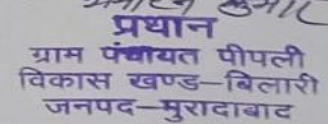 प्रधान
ग्राम पंचायत पीपली
विकास खण्ड–बिलारी
जनपद–मुरादाबाद